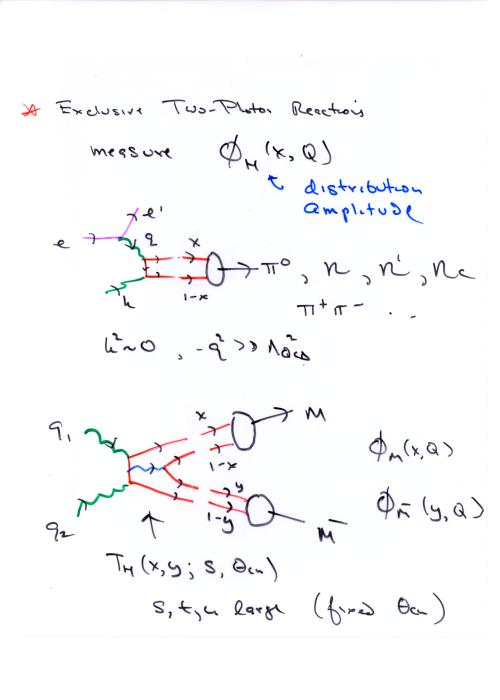 * Exclusive Two-Photon Reactions
measure ϕ_M (x, Q)
distribution
amplitude
e e' q x
k 1-x → π⁰, η, η', η_c
π⁺π⁻ ...
k² ~ 0 , -q² >> Λ²_QCD
q₁ x M
1-x ϕ_M(x,Q)
y
q₂ 1-y M̄ ϕ_M̄ (y,Q)
T_H (x,y; s, θ_cm)
s,t,u large (fixed θ_cm)